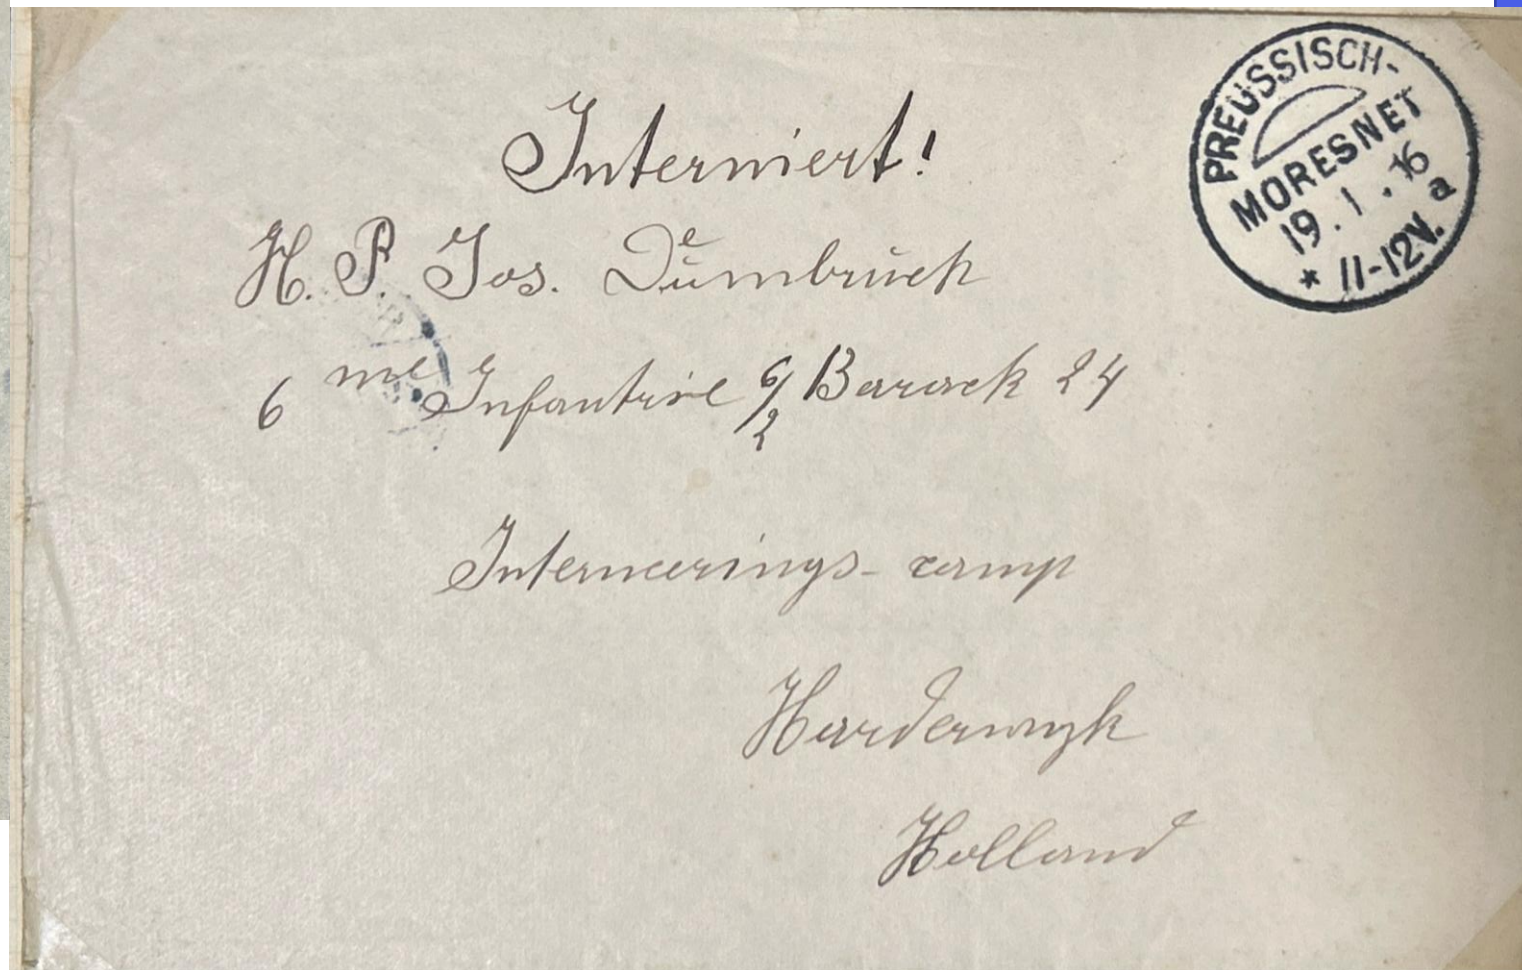 PREUSSISCH-
MORESNET
19.1.16
* 11-12V. a
Interniert!
H. P. Jos. Dümbruch
6 me Infantrie 6/2 Barack 24
Interneerings-camp
Harderwyk
Holland